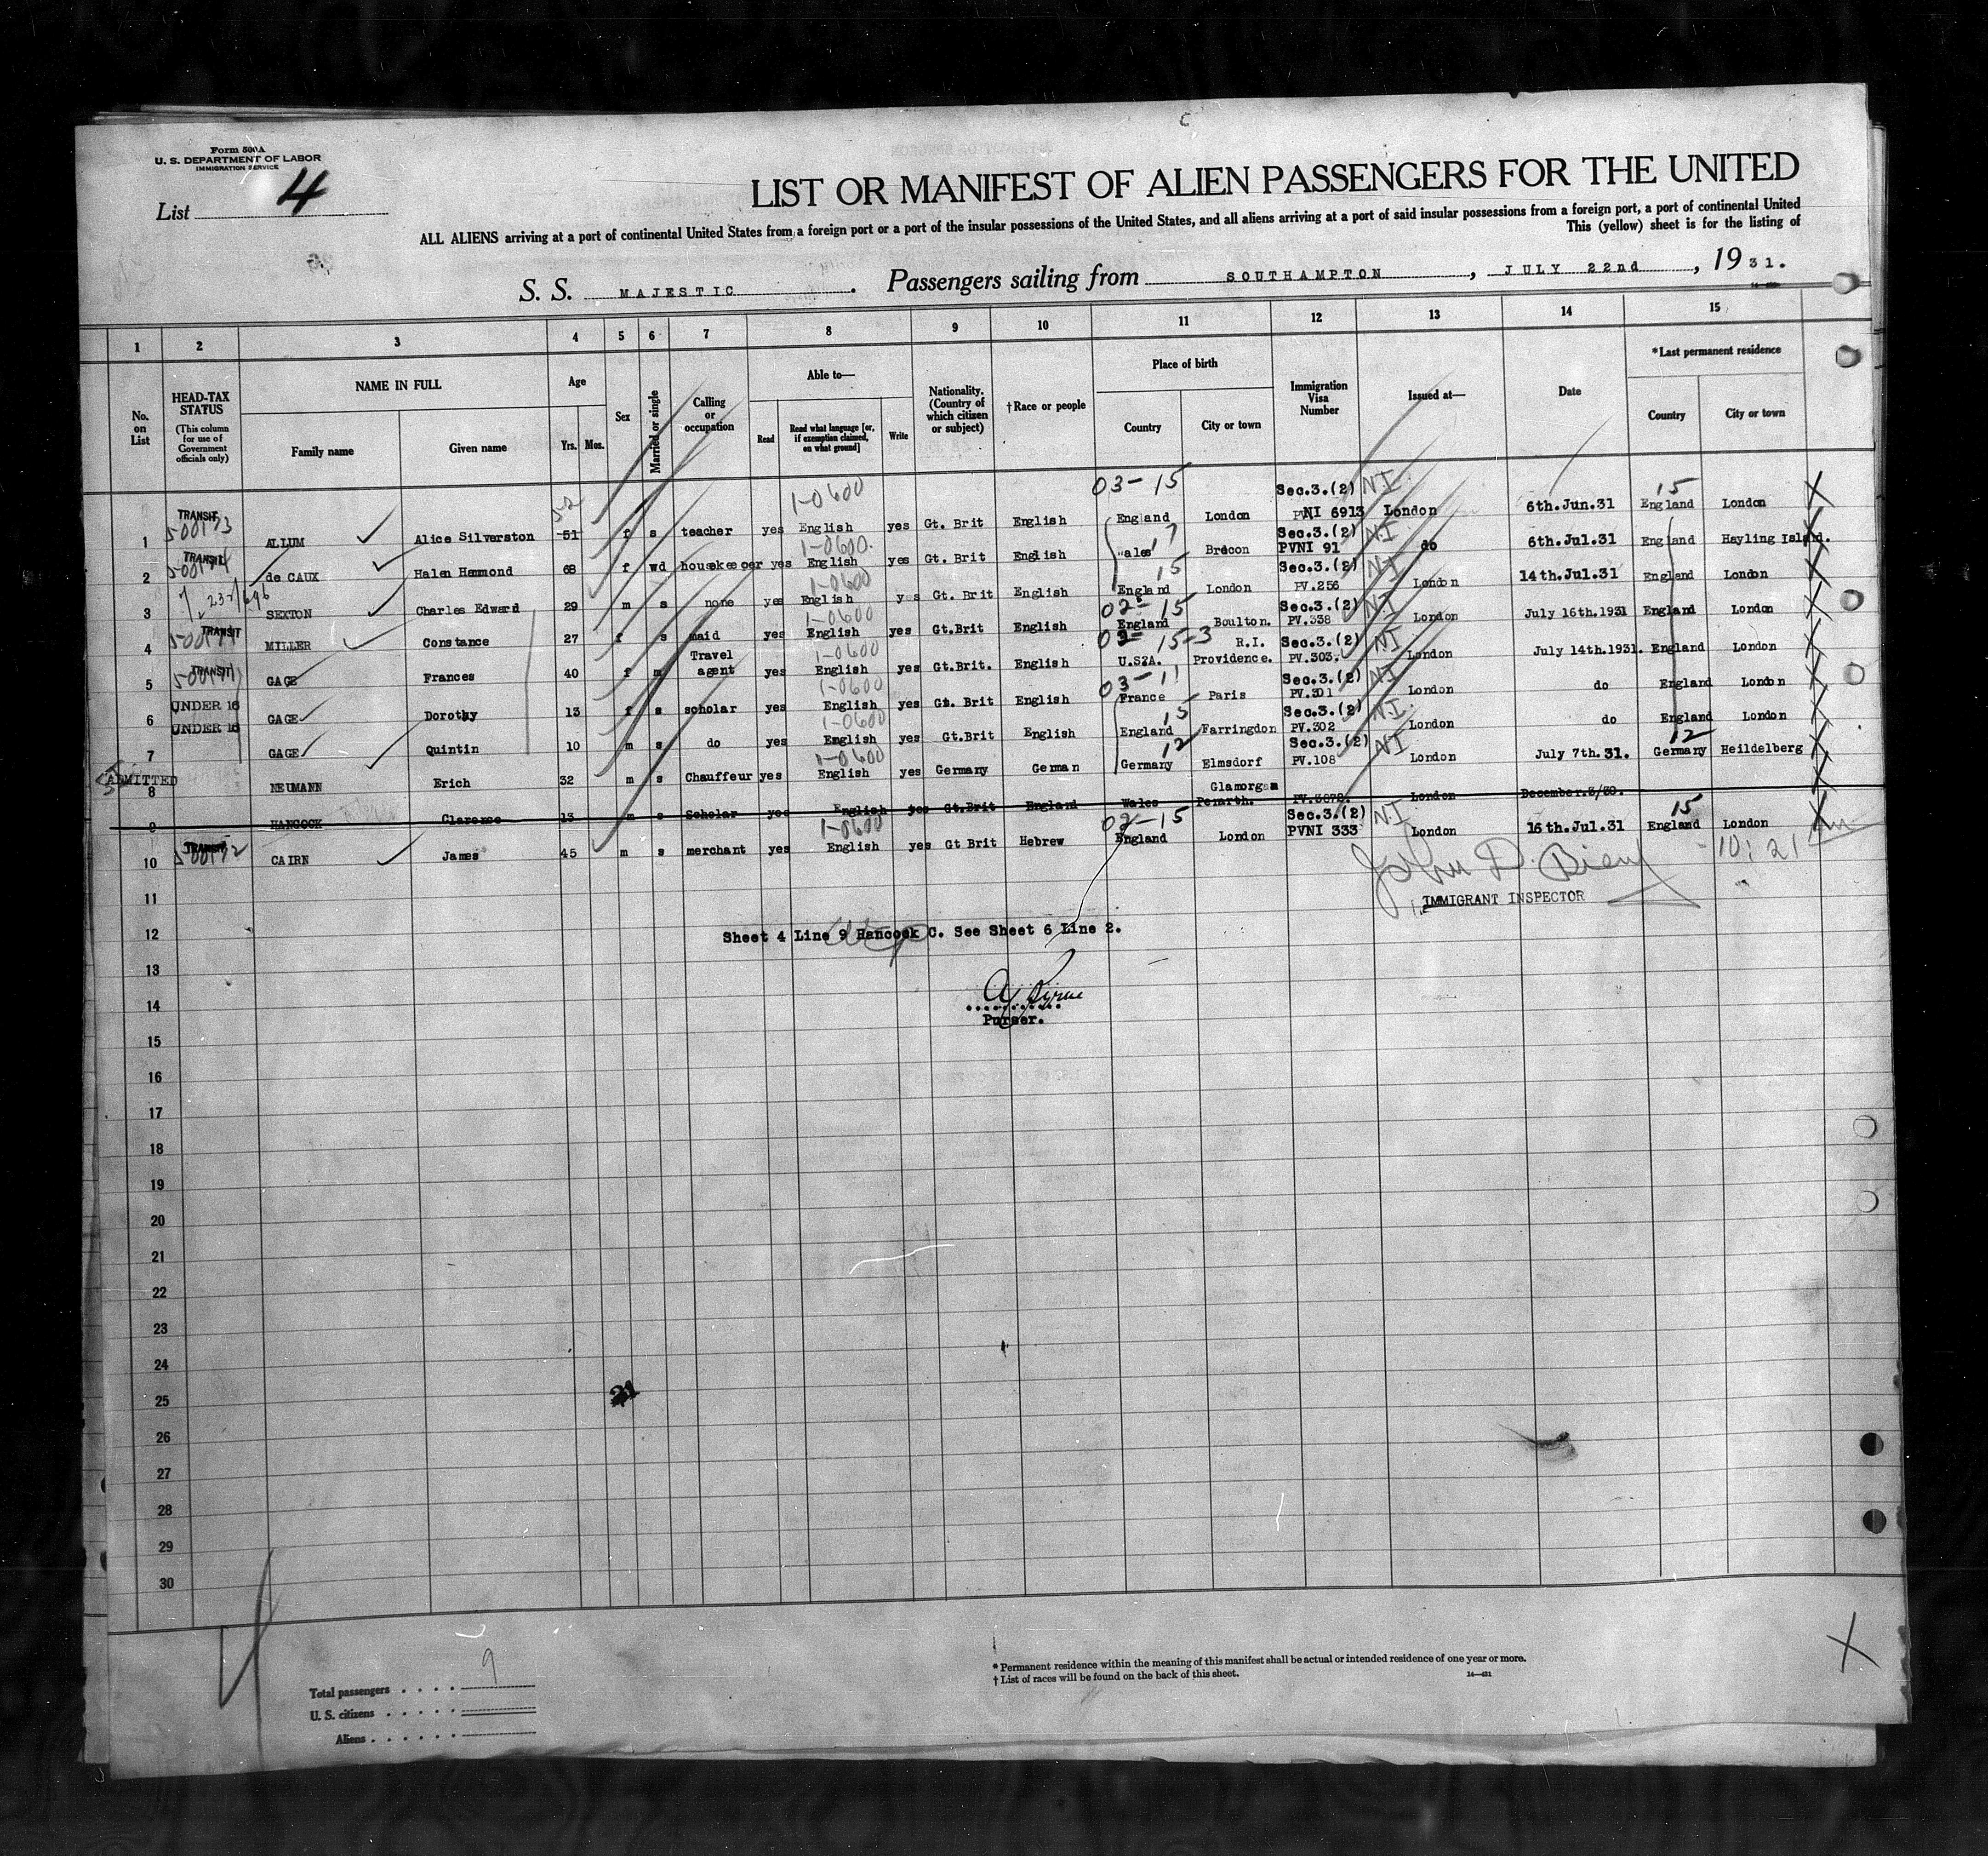 Form 500A
U. S. DEPARTMENT OF LABOR
IMMIGRATION SERVICE
List 4
LIST OR MANIFEST OF ALIEN PASSENGERS FOR THE UNITED
ALL ALIENS arriving at a port of continental United States from a foreign port or a port of the insular possessions of the United States, and all aliens arriving at a port of said insular possessions from a foreign port, a port of continental United
This (yellow) sheet is for the listing of
S. S. MAJESTIC. Passengers sailing from SOUTHAMPTON, JULY 22nd, 1931.
1 2 3 4 5 6 7 8 9 10 11 12 13 14 15
No. on List
HEAD-TAX STATUS
(This column for use of Government officials only)
NAME IN FULL
Family name
Given name
Age
Yrs. Mos.
Sex
Married or single
Calling or occupation
Able to—
Read
Read what language [or, if exemption claimed, on what ground]
Write
Nationality. (Country of which citizen or subject)
†Race or people
Place of birth
Country
City or town
Immigration Visa Number
Issued at—
Date
*Last permanent residence
Country
City or town
1-0600 03-15 Sec.3.(2) NI 15
1 TRANSIT 500173 ALLUM Alice Silverston 51 52 f s teacher yes English yes Gt. Brit English England London PVNI 6913 London 6th.Jun.31 England London X
1-0600. 17 Sec.3.(2) NI
2 TRANSIT 500174 de CAUX Halen Hammond 68 f wd housekeeper yes English yes Gt. Brit English Wales Brecon PVNI 91 do 6th.Jul.31 England Hayling Island. X
1-0600 15 Sec.3.(2) NI
3 SEXTON Charles Edward 29 m s none yes English yes Gt. Brit English England London PV.256 London 14th.Jul.31 England London X
1-0600 02-15 Sec.3.(2) NI
4 TRANSIT 500171 MILLER Constance 27 f s maid yes English yes Gt.Brit English England Boulton. PV.338 London July 16th.1931 England London X
Travel 1-0600 02-15-3 R.I. Sec.3.(2) NI
5 TRANSIT GAGE Frances 40 f m agent yes English yes Gt.Brit. English U.S?A. Providence. PV.303. London July 14th.1931. England London X
1-0600 03-11 Sec.3.(2) NI
6 UNDER 16 GAGE Dorothy 13 f s scholar yes English yes Gt. Brit English France Paris PV.301 London do England London X
1-0600 15 Sec.3.(2) NI
7 UNDER 16 GAGE Quintin 10 m s do yes English yes Gt.Brit English England Farringdon PV.302 London do England London X
1-0600 12 Sec.3.(2) NI 12
8 ADMITTED NEUMANN Erich 32 m s Chauffeur yes English yes Germany German Germany Elmsdorf PV.108 London July 7th.31. Germany Heildelberg X
Glamorgan
9 HANCOCK Clarence 13 m s Scholar yes English yes Gt.Brit England Wales Penarth. London X
1-0600 02-15 Sec.3.(2) NI 15
10 TRANSIT 500172 CAIRN James 45 m s merchant yes English yes Gt Brit Hebrew England London PVNI 333 London 16th.Jul.31 England London X
11
IMMIGRANT INSPECTOR
12 Sheet 4 Line 9 Hancock C. See Sheet 6 Line 2.
13
14
Purser.
15
16
17
18
19
20
21
22
23
24
25
26
27
28
29
30
9
Total passengers
U. S. citizens
Aliens
* Permanent residence within the meaning of this manifest shall be actual or intended residence of one year or more.
† List of races will be found on the back of this sheet.
14—431
X